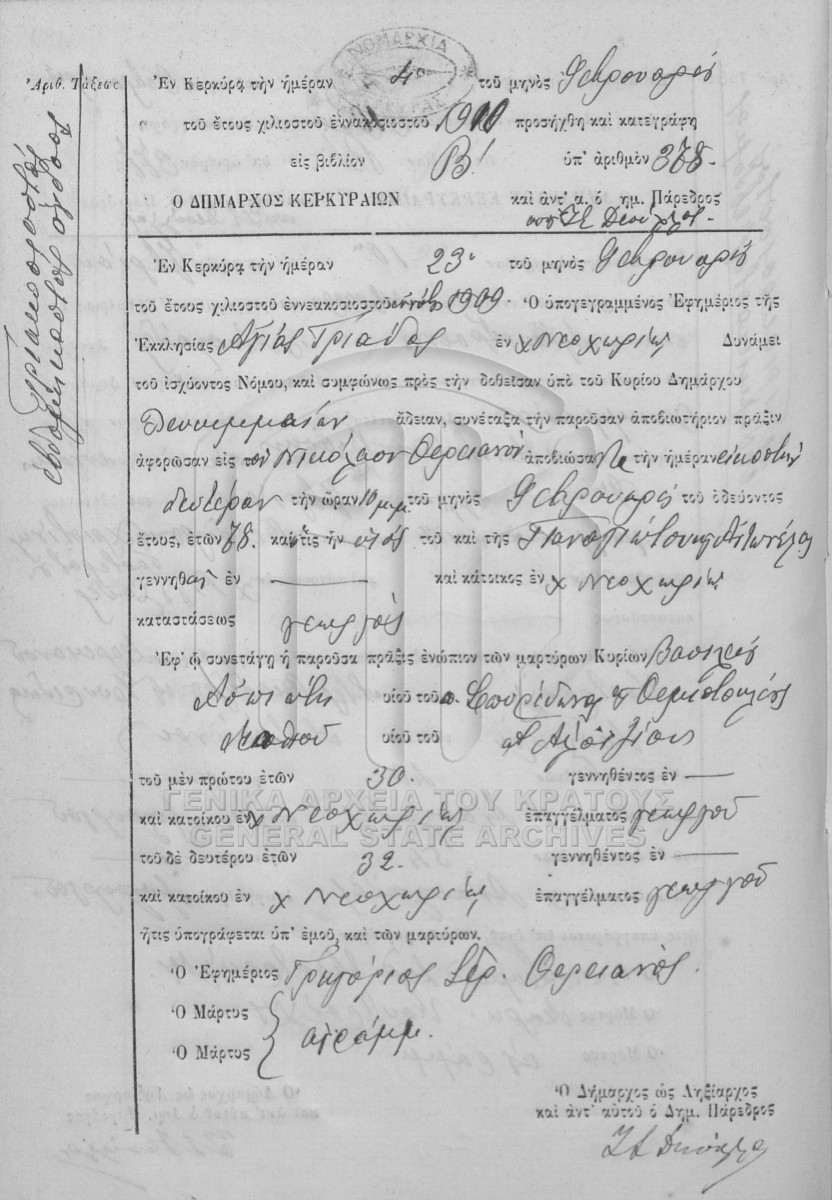 ΝΟΜΑΡΧΙΑ
Ἀριθ. Τάξεως
Τριακοσιοστός
ἑβδομηκοστός ὄγδοος
Ἐν Κερκύρᾳ τὴν ἡμέραν 4 τοῦ μηνὸς Φεβρουαρίου
τοῦ ἔτους χιλιοστοῦ ἐννακοσιοστοῦ 1910 προσήχθη καὶ κατεγράφη
εἰς βιβλίον Β! ὑπ' ἀριθμὸν 378.
Ὁ ΔΗΜΑΡΧΟΣ ΚΕΡΚΥΡΑΙΩΝ καὶ ἀντ' α. ὁ δημ. Πάρεδρος
Ἐν Κερκύρᾳ τὴν ἡμέραν 23 τοῦ μηνὸς Φεβρουαρίου
τοῦ ἔτους χιλιοστοῦ ἐννεακοσιοστοῦ 1909 - Ὁ ὑπογεγραμμένος Ἐφημέριος τῆς
Ἐκκλησίας Ἁγίας Τριάδος ἐν χ Νεοχωρίῳ Δυνάμει
τοῦ ἰσχύοντος Νόμου, καὶ συμφώνως πρὸς τὴν δοθεῖσαν ὑπὸ τοῦ Κυρίου Δημάρχου
Λευκιμμαίων ἄδειαν, συνέταξα τὴν παροῦσαν ἀποβιωτήριον πρᾶξιν
ἀφορῶσαν εἰς τὸν Νικόλαον Θερειανὸν ἀποβιώσαντα τὴν ἡμέραν εἰκοστὴν
δευτέραν τὴν ὥραν 10 μ.μ. τοῦ μηνὸς Φεβρουαρίου τοῦ ὁδεύοντος
ἔτους, ἐτῶν 78. καὶ τις ἦν υἱὸς τοῦ καὶ τῆς Παναγιώτου
γεννηθεὶς ἐν — καὶ κάτοικος ἐν χ Νεοχωρίῳ
καταστάσεως γεωργός
Ἐφ' ᾧ συνετάγη ἡ παροῦσα πρᾶξις ἐνώπιον τῶν μαρτύρων Κυρίων Βασιλείου
Ἀσπιώτη υἱοῦ τοῦ Σπυρίδωνος Θεμιστοκλέους
υἱοῦ τοῦ
τοῦ μὲν πρώτου ἐτῶν 30. γεννηθέντος ἐν —
καὶ κατοίκου ἐν χ Νεοχωρίῳ ἐπαγγέλματος γεωργοῦ
τοῦ δὲ δευτέρου ἐτῶν 32. γεννηθέντος ἐν —
καὶ κατοίκου ἐν χ Νεοχωρίῳ ἐπαγγέλματος γεωργοῦ
ἥτις ὑπογράφεται ὑπ' ἐμοῦ, καὶ τῶν μαρτύρων.
Ὁ Ἐφημέριος Γρηγόριος Ἱερ. Θερειανός.
Ὁ Μάρτυς
Ὁ Μάρτυς ἀγράμμ.
Ὁ Δήμαρχος ὡς Ληξίαρχος
καὶ ἀντ' αὐτοῦ ὁ Δημ. Πάρεδρος
ΓΕΝΙΚΑ ΑΡΧΕΙΑ ΤΟΥ ΚΡΑΤΟΥΣ
GENERAL STATE ARCHIVES